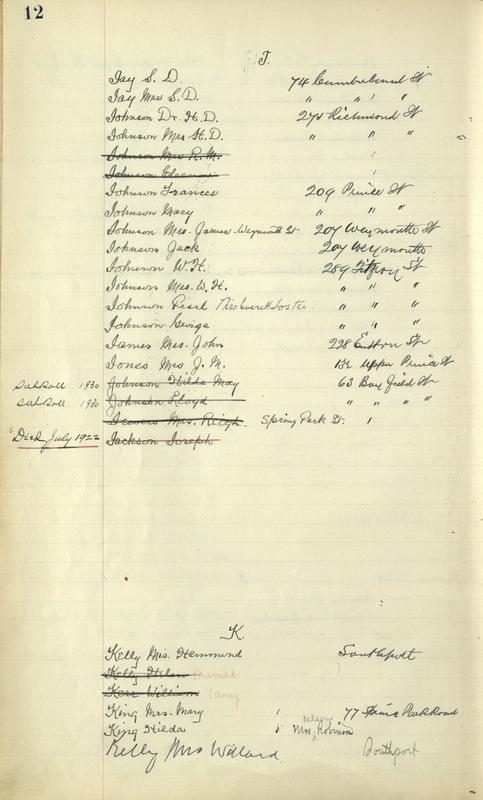 12
J.
Jay S. D. 74 Cumberland St
Jay Mrs S. D. " " "
Johnson Dr. H. D. 278 Richmond St
Johnson Mrs H. D. " " "
Johnson Mrs R. M.
Johnson Eleanor
Johnson Frances 209 Prince St
Johnson Macy " " "
Johnson Mrs. James - Weymouth St - 207 Weymouth St
Johnson Jack 207 Weymouth
Johnson W. H. 289 Fitzroy St
Johnson Mrs. W. H. " " "
Johnson Pearl " "
Johnson George " " "
James Mrs. John 228 St
Jones Mrs J. M. 132 Upper Prince St
SubRoll 1930 Johnson Hilda May 63 Bay field St
SubRoll 1930 Johnson Lloyd " " " "
Mrs. Spring Park St.
"Died July 1922 Jackson Joseph
K.
Kelly Mrs. Hammond Southport
Kelly Helen (married)
Kerr William (away
King Mrs. Mary 77 Spring Park Road
King Hilda Mrs. Nelson Robinson
Kelly Mrs Willard. Southport